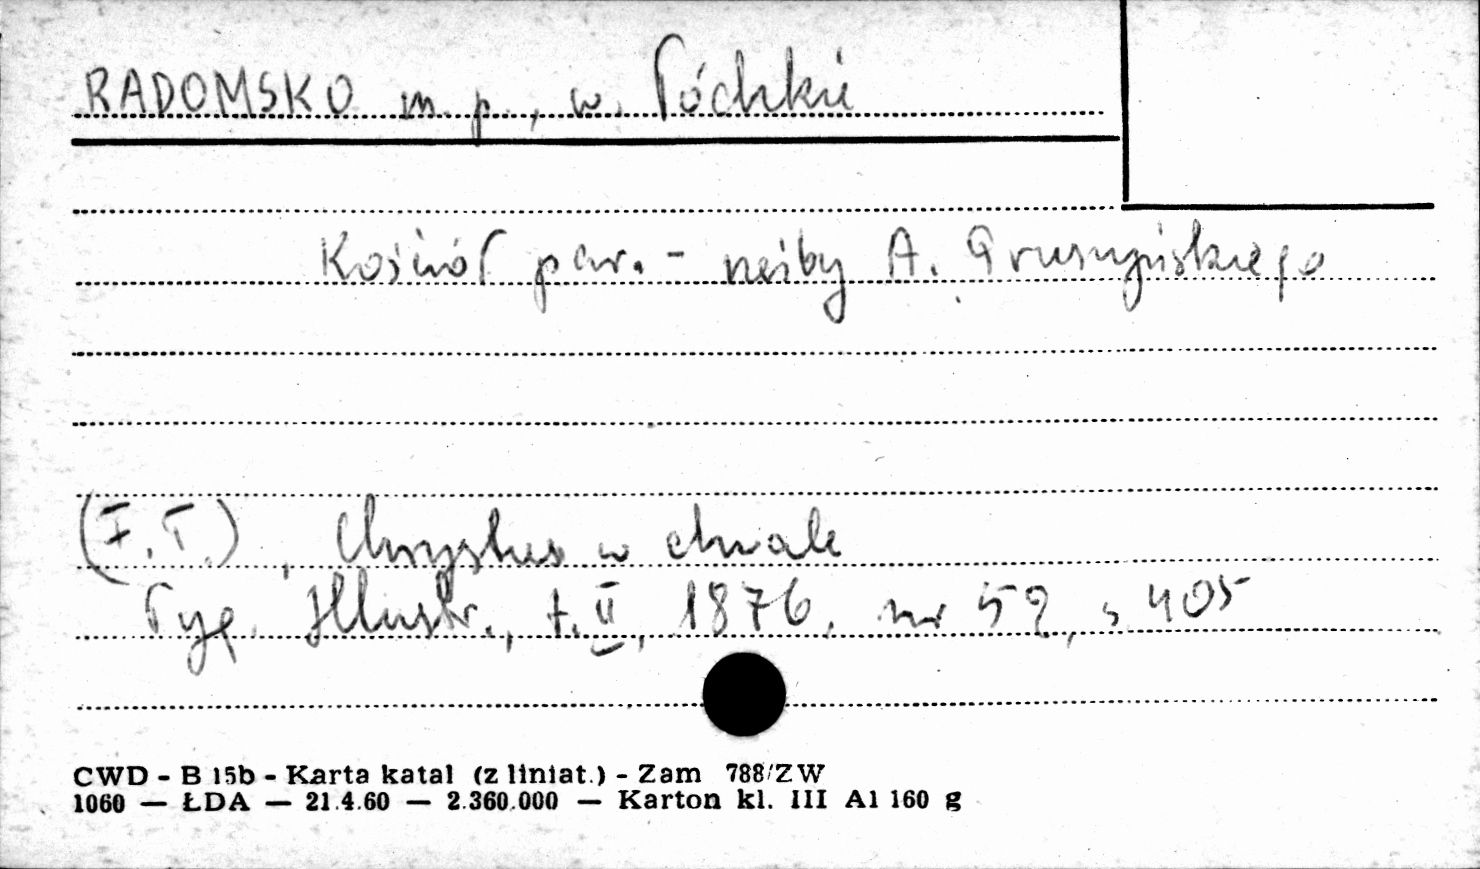 RADOMSKO m. p., w. Łódzkie
Kościół par. - rzeźby A. Pruszyńskiego
(F.T.), Chrystus w chwale
Tyg. Illustr., t. II, 1876, nr 52, s 405
CWD - B 15b - Karta katal (z liniat.) - Zam 788/ZW
1060 — ŁDA — 21.4.60 — 2.360.000 — Karton kl. III A1 160 g